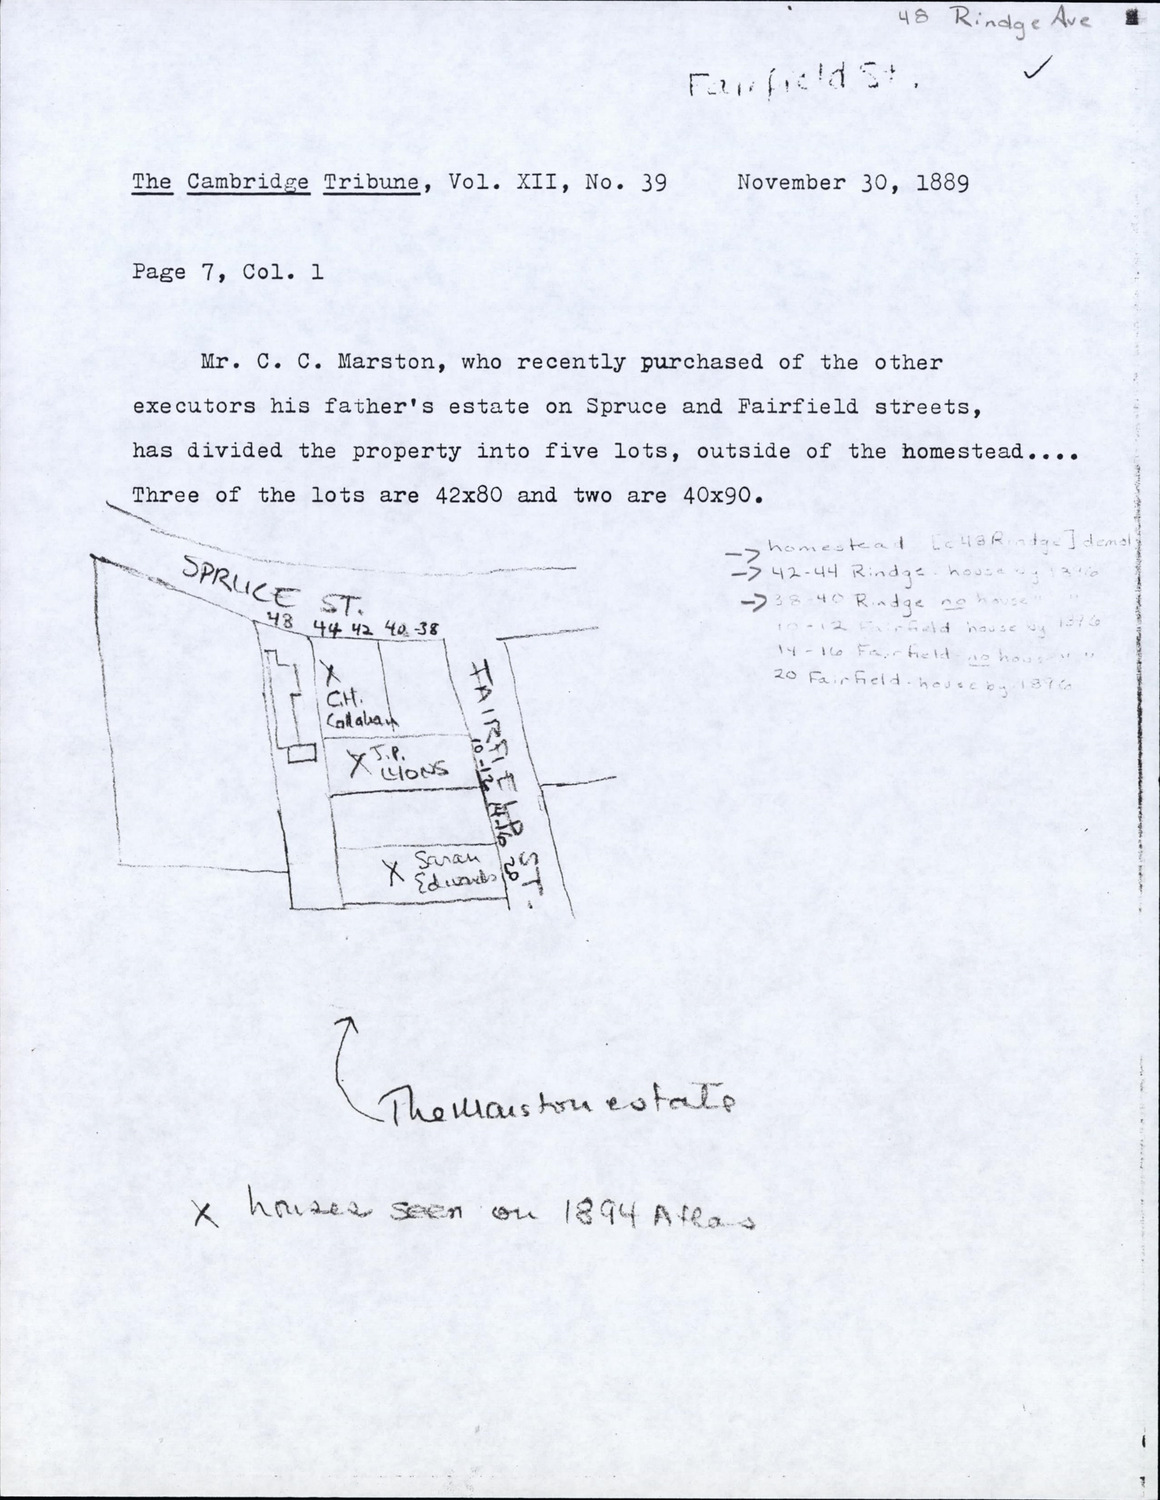 48 Rindge Ave
Fairfield St.
The Cambridge Tribune, Vol. XII, No. 39 November 30, 1889
Page 7, Col. 1
Mr. C. C. Marston, who recently purchased of the other
executors his father's estate on Spruce and Fairfield streets,
has divided the property into five lots, outside of the homestead....
Three of the lots are 42x80 and two are 40x90.
homestead [c48 Rindge] demol
42-44 Rindge - house by 1896
38-40 Rindge no house " "
10-12 Fairfield house by 1896
14-16 Fairfield no house " "
20 Fairfield - house by 1896
SPRUCE ST.
48 44 42 40-38
X
C.H.
Callahan
X J.P.
LYONS
X Sarah
Edwards
FAIRFIELD ST.
10-12
14-16
20
The Marston estate
X houses seen on 1894 Atlas